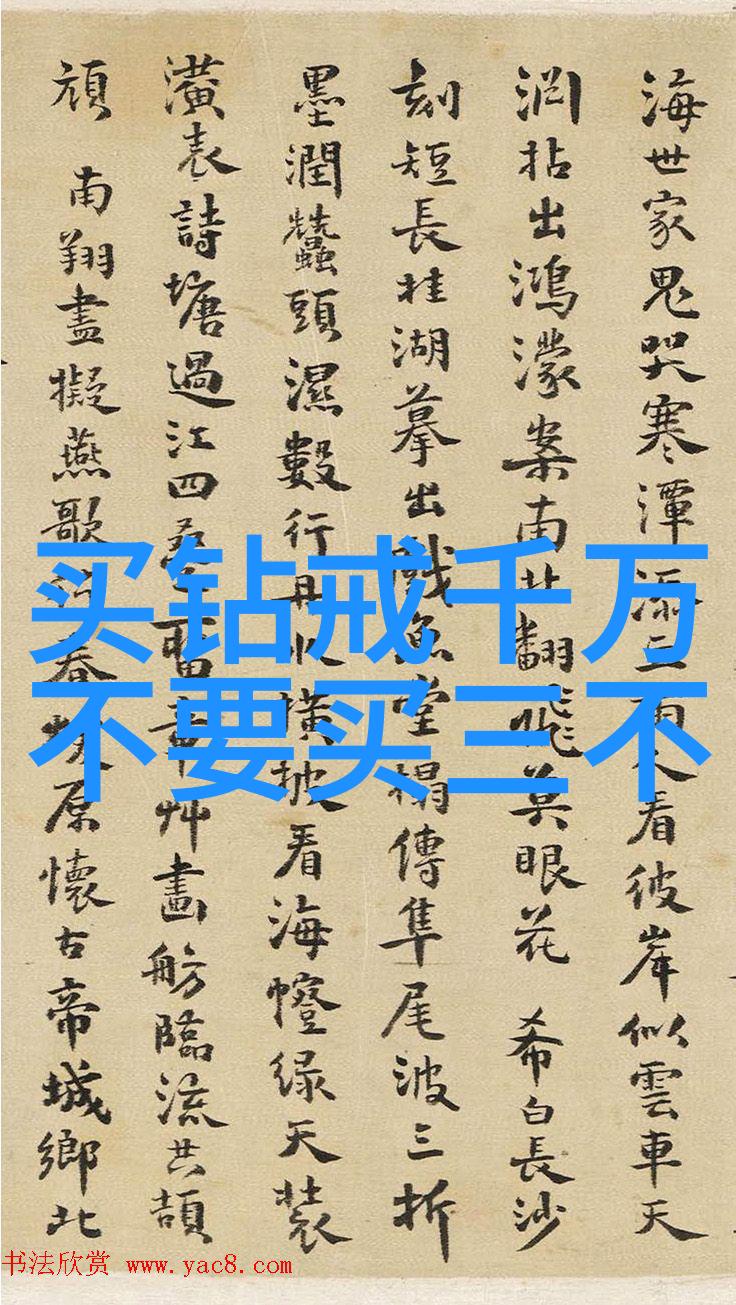 海世家鬼哭寒潭添看彼岸似雲車天
淵拈出鴻濛案南北翻飛莫眼花 希白長沙
刻短長桂湖摹出魚堂榻傳隼尾波三折
墨潤蠶頭濕數行橫披看海幢綠天裝
潢表詩塘過江四章艸畫舫臨流共頡
頏 南翔盡擬燕歌原懷古帝城鄉北
买钻戒千万
不要买三不
书法欣赏 www.yac8.com